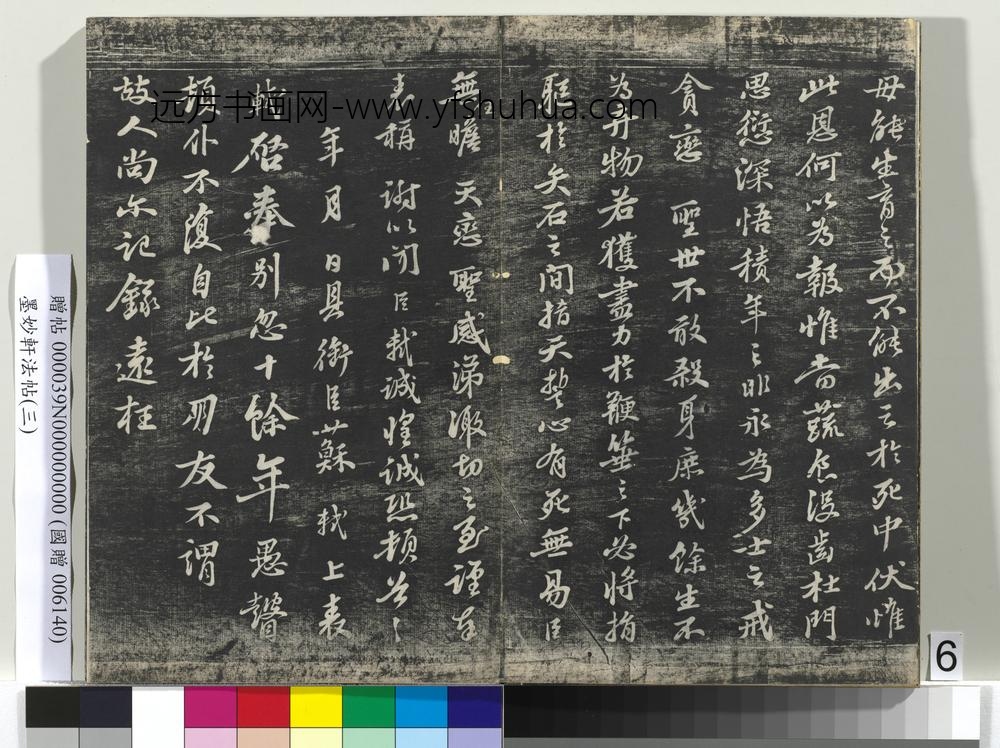 母能生育之而不能出之於死中伏惟
此恩何以為報惟當蔬食沒齒杜門
思愆深悟積年之非永為多士之戒
貪戀 聖世不敢殺身庶幾餘生不
為弃物若獲盡力於鞭箠之下必將捐
軀於矢石之間指天誓心有死無易臣
無瞻 天戀聖感涕激切之至謹奉
表稱 謝以聞臣軾誠惶誠恐頓首〻
年月 日具銜臣蘇軾上表
軾啓奉別忽十餘年愚瞽
頓仆不復自比於朋友不謂
故人尚尔記錄遠枉
远方书画网-www.yfshuhua.com
贈帖 000039N000000000 (國贈 006140)
墨妙軒法帖(三)
6